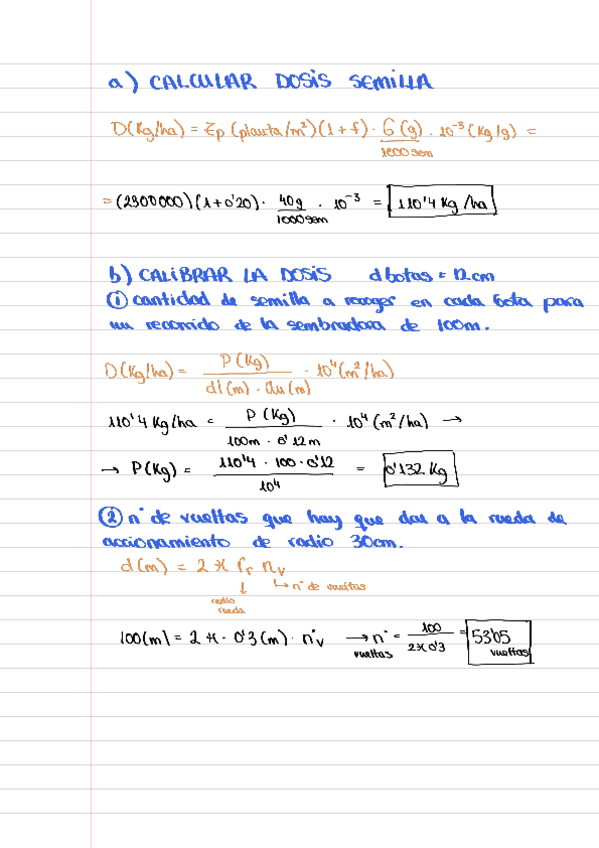 a) CALCULAR DOSIS SEMILLA
D(Kg/ha) = Zp (planta/m²)(1 + f) · G (g) / 1000 sem · 10⁻³ (Kg/g) =
= (2300000)(1+0'20) · 40g / 1000sem · 10⁻³ = 110'4 Kg/ha
b) CALIBRAR LA DOSIS d botas = 12 cm
① cantidad de semilla a recoger en cada bota para
un recorrido de la sembradora de 100m.
D(Kg/ha) = P (Kg) / dl (m) · au (m) · 10⁴ (m²/ha)
110'4 Kg/ha = P (Kg) / 100m · 0'12 m · 10⁴ (m²/ha) →
→ P(Kg) = 110'4 · 100 · 0'12 / 10⁴ = 0'132 Kg
② n° de vueltas que hay que dar a la rueda de
accionamiento de radio 30cm.
d (m) = 2 π rr nv
↓ radio rueda ↳ n° de vueltas
100(m) = 2 π · 0'3 (m) · n°v → n° vueltas = 100 / 2π 0'3 = 53'05 vueltas